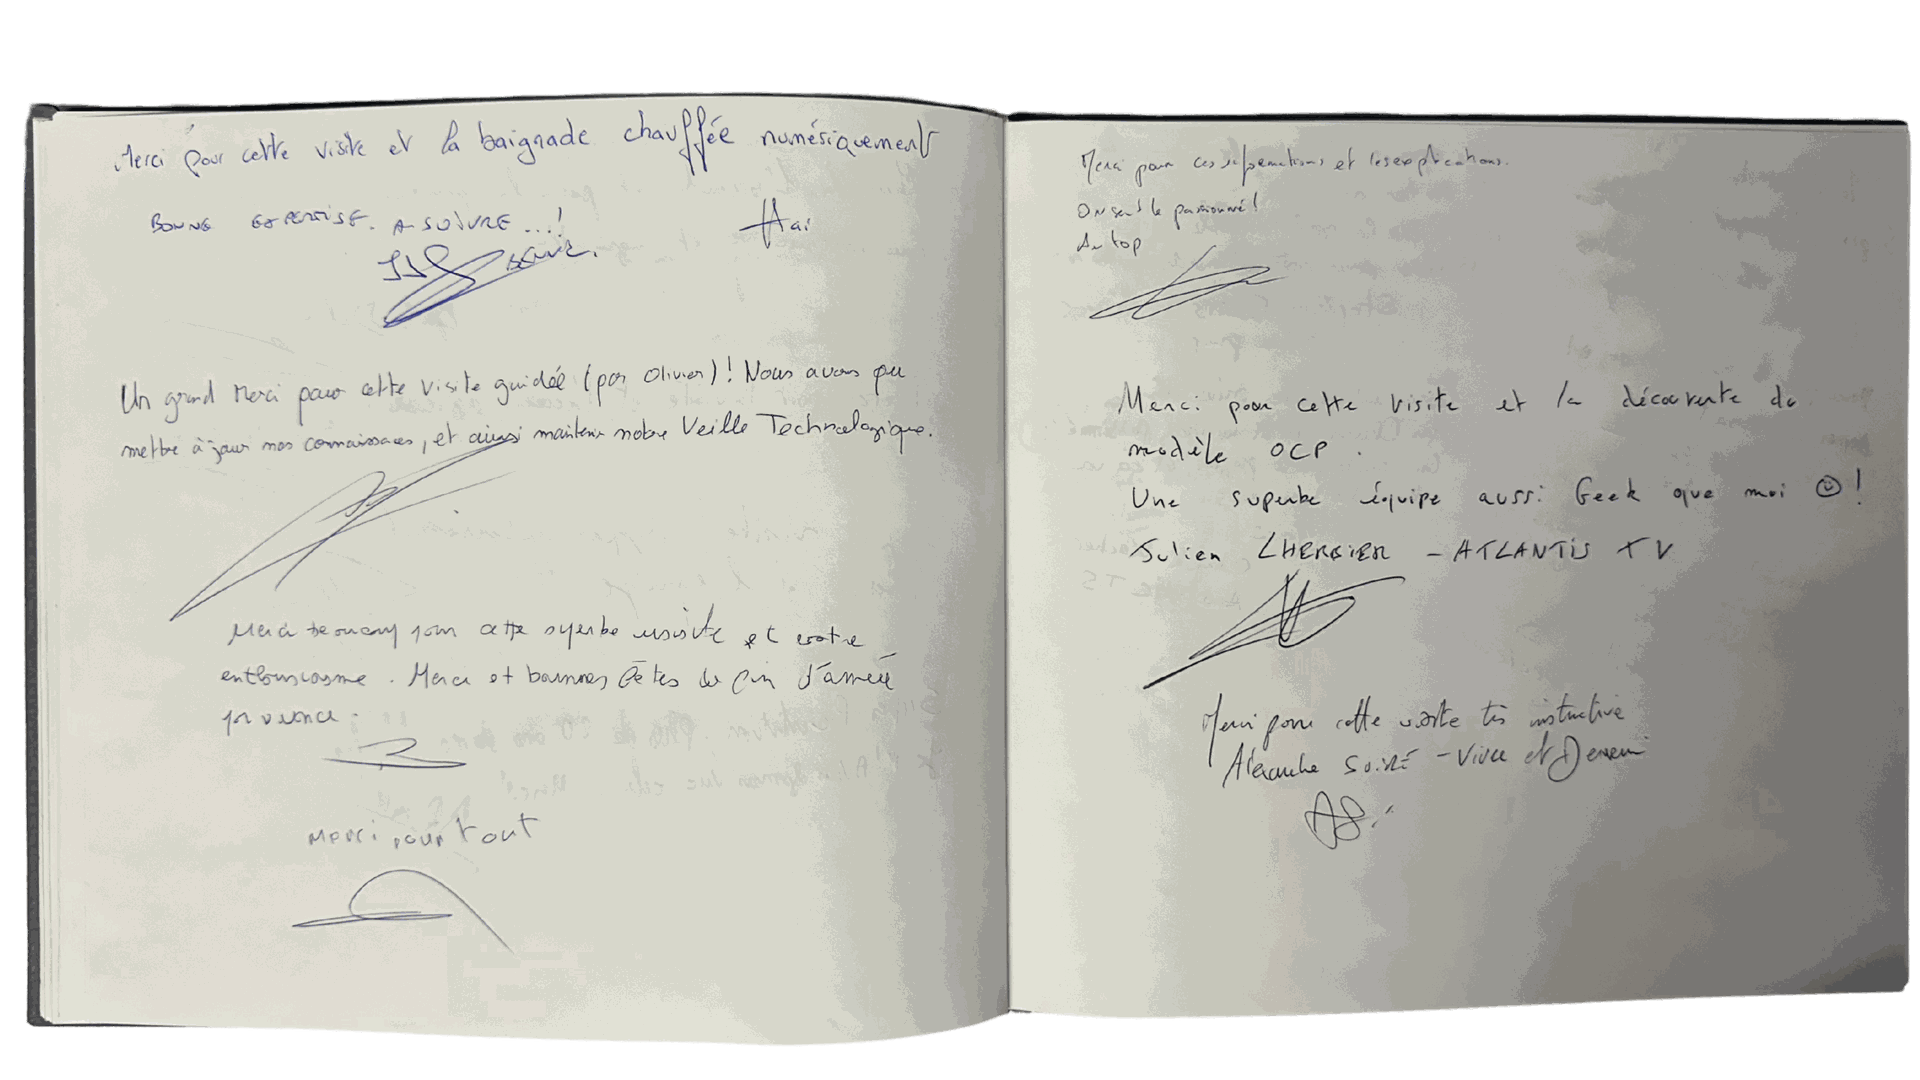 Merci pour cette visite et la baignade chauffée numériquement
Hai
BONNE EXPERTISE. A SUIVRE ...!
Un grand Merci pour cette visite guidée (par Olivier)! Nous avons pu
mettre à jour nos connaissances, et ainsi maintenir notre Veille Technologique.
Merci beaucoup pour cette superbe visite et votre
enthousiasme. Merci et bonnes fêtes de fin d'année
par avance.
Merci pour tout
Merci pour ces informations et les explications.
On sent le passionné!
Au top
Merci pour cette visite et la découverte du
modèle OCP.
Une superbe équipe aussi Geek que moi ☺!
Julien LHERBIER - ATLANTIS TV
Merci pour cette visite très instructive
Alexandre - Vivre et Devenir